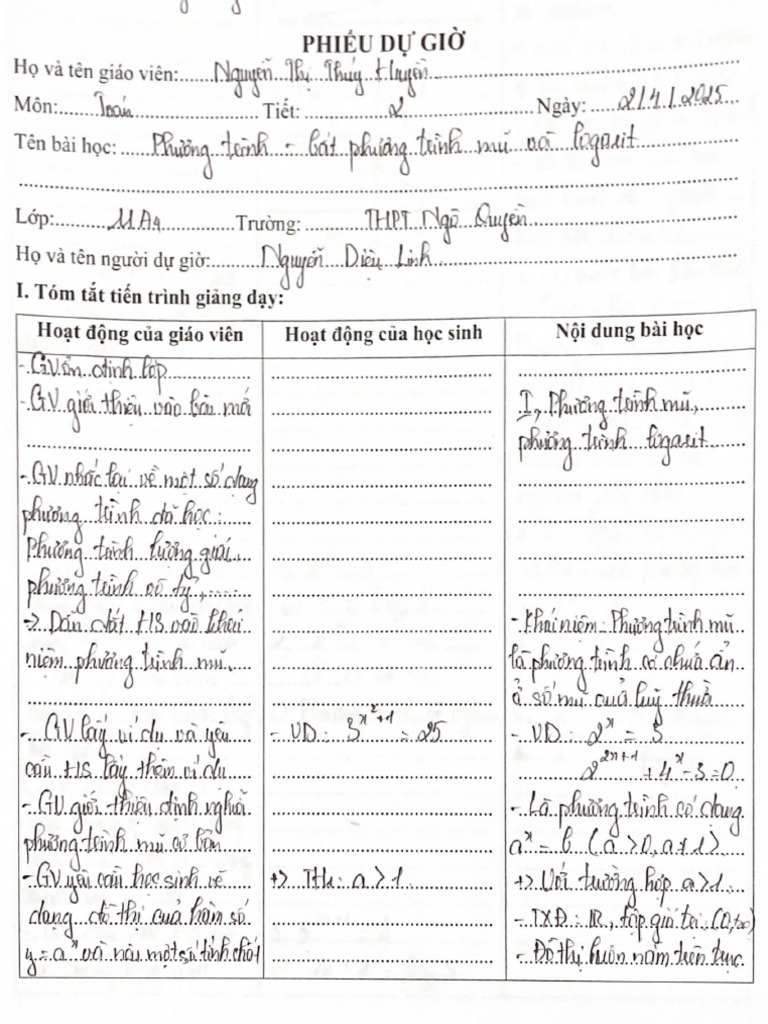 PHIẾU DỰ GIỜ
Họ và tên giáo viên: Nguyễn Thị Thúy Huyền
Môn: Toán Tiết: 2 Ngày: 2/4/2025
Tên bài học: Phương trình - bất phương trình mũ và logarit
Lớp: 11A4 Trường: THPT Ngô Quyền
Họ và tên người dự giờ: Nguyễn Diệu Linh
I. Tóm tắt tiến trình giảng dạy:
Hoạt động của giáo viên
- GV ổn định lớp
- GV giới thiệu vào bài mới
- GV nhắc lại về một số dạng
phương trình đã học:
Phương trình lượng giác,
phương trình vô tỷ,......
=> Dẫn dắt HS vào khái
niệm phương trình mũ.
- GV lấy ví dụ và yêu
cầu HS lấy thêm ví dụ
- GV giới thiệu định nghĩa
phương trình mũ cơ bản
- GV yêu cầu học sinh vẽ
dạng đồ thị của hàm số
y = aˣ và nêu một số tính chất
Hoạt động của học sinh
- VD: 3^{x²+1} = 25
+> TH1: a > 1
Nội dung bài học
I, Phương trình mũ,
phương trình logarit
- Khái niệm: Phương trình mũ
là phương trình có chứa ẩn
ở số mũ của luỹ thừa
- VD: 2ˣ = 3
2^{2x+1} + 4ˣ - 3 = 0
- Là phương trình có dạng
aˣ = b (a > 0, a ≠ 1)
+> Với trường hợp a > 1
- TXĐ: R, tập giá trị (0,+∞)
- Đồ thị luôn nằm trên trục